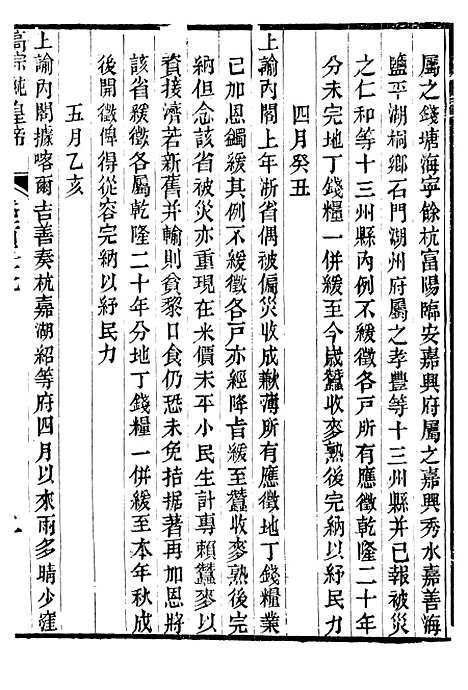 屬之錢塘海寧餘杭富陽臨安嘉興府屬之嘉興秀水嘉善海
鹽平湖桐鄉石門湖州府屬之孝豐等十三州縣并已報被災
之仁和等十三州縣內例不緩徵各戸所有應徵乾隆二十年
分未完地丁錢糧一併緩至今歲蠶收麥熟後完納以紓民力
四月癸丑
上諭內閣上年浙省偶被偏災收成歉薄所有應徵地丁錢糧業
已加恩蠲緩其例不緩徵各戸亦經降旨緩至蠶收麥熟後完
納但念該省被災亦重現在米價未平小民生計專賴蠶麥以
資接濟若新舊并輸則貧黎口食仍恐未免拮据著再加恩將
該省緩徵各屬乾隆二十年分地丁錢糧一併緩至本年秋成
後開徵俾得從容完納以紓民力
五月乙亥
上諭內閣據喀爾吉善奏杭嘉湖紹等府四月以來雨多晴少窪
高宗純皇帝